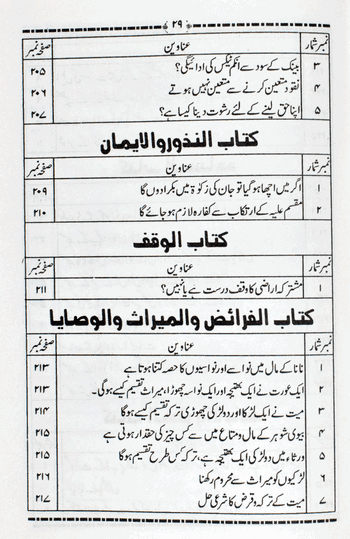 ۲۹
نمبر شمار عناوین صفحہ نمبر
۳ بینک کے سود سے انکم ٹیکس کی ادائیگی؟ ۲۰۵
۴ نقود متعین کرنے سے متعین نہیں ہوتے ۲۰۶
۵ اپنا حق لینے کے لئے رشوت دینا کیسا ہے؟ ۲۰۷
کتاب النذور والایمان
نمبر شمار عناوین صفحہ نمبر
۱ اگر میں اچھا ہو گیا تو جان کی زکوٰۃ میں بکرا دوں گا ۲۰۹
۲ مقسم علیہ کے ارتکاب سے کفارہ لازم ہو جائے گا ۲۱۰
کتاب الوقف
نمبر شمار عناوین صفحہ نمبر
۱ مشترکہ اراضی کا وقف درست ہے یا نہیں؟ ۲۱۱
کتاب الفرائض والمیراث والوصایا
نمبر شمار عناوین صفحہ نمبر
۱ نانا کے مال میں نواسے اور نواسیوں کا حصہ کتنا ہوتا ہے ۲۱۳
۲ ایک عورت نے ایک بھتیجہ اور ایک نواسہ چھوڑا، میراث تقسیم کیسے ہو گی۔ ۲۱۳
۳ میت نے ایک لڑکا اور دو لڑکی چھوڑی ترکہ تقسیم کیسے ہوگا ۲۱۴
۴ بیوی شوہر کے مال و متاع میں سے کس چیز کی حقدار ہوتی ہے ۲۱۵
۵ ورثاء میں دو لڑکی ایک بھتیجہ ہے، ترکہ کس طرح تقسیم ہوگا ۲۱۵
۶ لڑکیوں کو میراث سے محروم رکھنا ۲۱۶
۷ میت کے ترکہ و قرض کا شرعی حل ۲۱۷